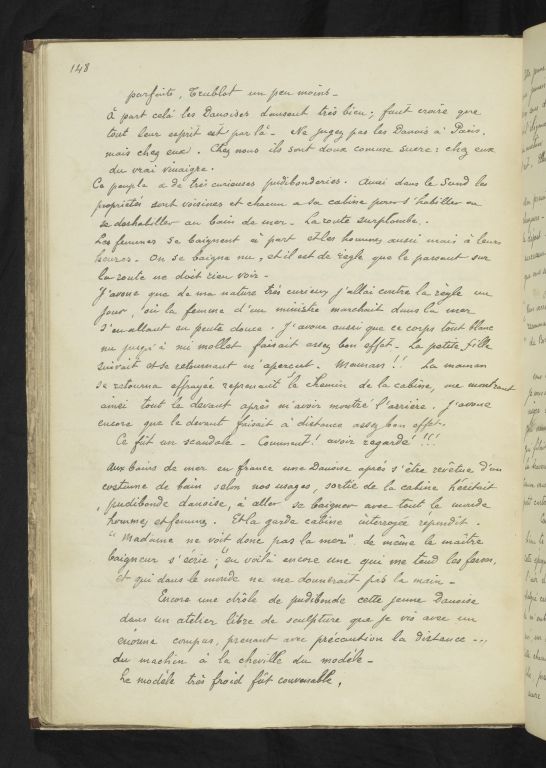 148
parfaite, Trublot un peu moins_
à part celà les Danoises dansent très bien; faut croire que
tout leur esprit est par là_ Ne jugez pas les Danois à Paris,
mais chez eux. Chez nous ils sont doux comme sucre: chez eux
du vrai vinaigre.
Ce peuple a de très curieuses pudibonderies. Ainsi dans le Sund les
propriétés sont voisines et chacun a sa cabine pour s'habiller ou
se deshabiller au bain de mer_ La route surplombe.
Les femmes se baignent à part et les hommes aussi mais à leurs
heures_ On se baigne nu, et il est de règle que le passant sur
la route ne doit rien voir_
J'avoue que de ma nature très curieux j'allai contre la règle un
jour, où la femme d'un ministre marchait dans la mer
s'en allant en pente douce. J'avoue aussi que ce corps tout blanc
nu jusqu'à mi mollet faisait assez bon effet_ La petite fille
suivait et se retournant m'aperçut. Maman!! La maman
se retourna effrayée reprenant le chemin de la cabine, me montrant
ainsi tout le devant après m'avoir montré l'arrière. J'avoue
encore que le devant faisait à distance assez bon effet_
Ce fût un scandale_ Comment! avoir regardé!!!
Aux bains de mer en france une Danoise après s'être revêtue d'un
costume de bain selon nos usages, sortie de la cabine hésitait
pudibonde danoise, à aller se baigner avec tout le monde
hommes et femmes. Et la garde cabine interrogée répondit.
"Madame ne voit donc pas la mer" de même le maître
baigneur s'écrie; "en voilà encore une que me tend les
et qui dans le monde ne me donnerait pas la main_
Encore une drôle de pudibonde cette jeune Danoise
dans un atelier libre de sculpture que je vis avec un
énorme compas, prenant avec précaution la distance_...
du machin à la cheville du modèle_
Le modèle très froid fût convenable,